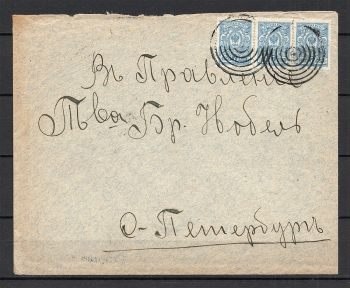 Въ Правленіе
Тва Бр. Нобель
С-Петербургъ